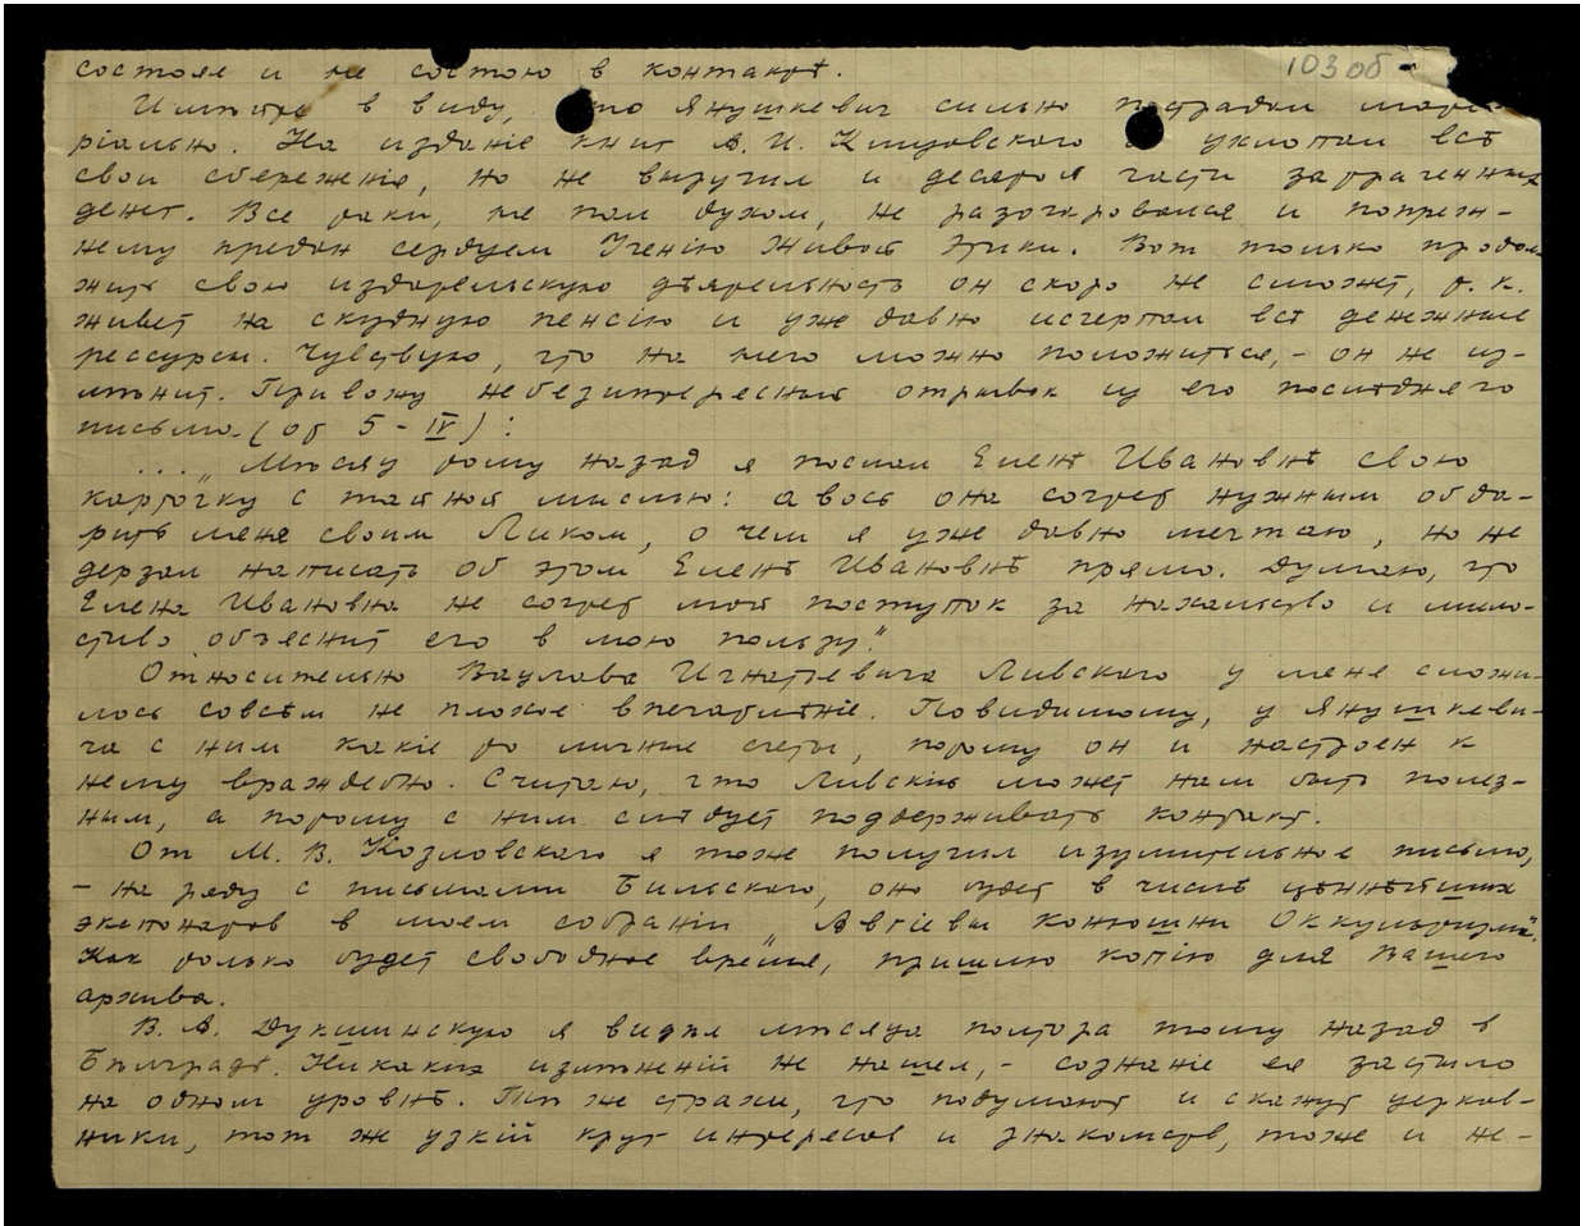 103 об
состоял и не состою в контактѣ.
Имѣйте в виду, что Янушкевич сильно пострадал мате-
ріально. На изданіе книг А. И. Клизовского он ухлопал всѣ
свои сбереженія, но не выручил и десятой части затраченных
денег. Все таки, не пал духом, не разочаровался и попреж-
нему предан сердцем Ученію Живой Этики. Вот только продол-
жить свою издательскую дѣятельность он скоро не сможет, т. к.
живет на скудную пенсію и уже давно исчерпал всѣ денежные
рессурсы. Чувствую, что на него можно положиться, - он не из-
мѣнит. Привожу небезинтересный отрывок из его послѣдняго
письма (от 5-IV):
... „Мѣсяц тому назад я послал Еленѣ Ивановнѣ свою
карточку с тайной мыслью: авось она сочтет нужным ода-
рить меня своим Ликом, о чем я уже давно мечтаю, но не
дерзал написать об этом Еленѣ Ивановнѣ прямо. Думаю, что
Елена Ивановна не сочтет мой поступок за нахальство и мило-
стиво объяснит его в мою пользу."
Относительно Вацлава Игнатьевича Ливского у меня сложи-
лось совсѣм не плохое впечатлѣніе. Повидимому, у Янушкеви-
ча с ним какіе то личные счеты, потому он и настроен к
нему враждебно. Считаю, что Ливскій может нам быть полез-
ным, а потому с ним слѣдует поддерживать контакт.
От М. В. Козловского я тоже получил изумительное письмо,
- на ряду с письмами Бильского, оно будет в числѣ цѣннѣйших
экспонатов в моем собраніи „Авгіевы конюшни Оккультизма".
Как только будет свободное время, пришлю копію для Вашего
архива.
В. А. Дукшинскую я видѣл мѣсяца полтора тому назад в
Бѣлградѣ. Никаких измѣненій не нашел, - сознаніе ея застыло
на одном уровнѣ. Тѣ же страхи, что подумают и скажут церков-
ники, тот же узкій круг интересов и знакомств, тоже и не-